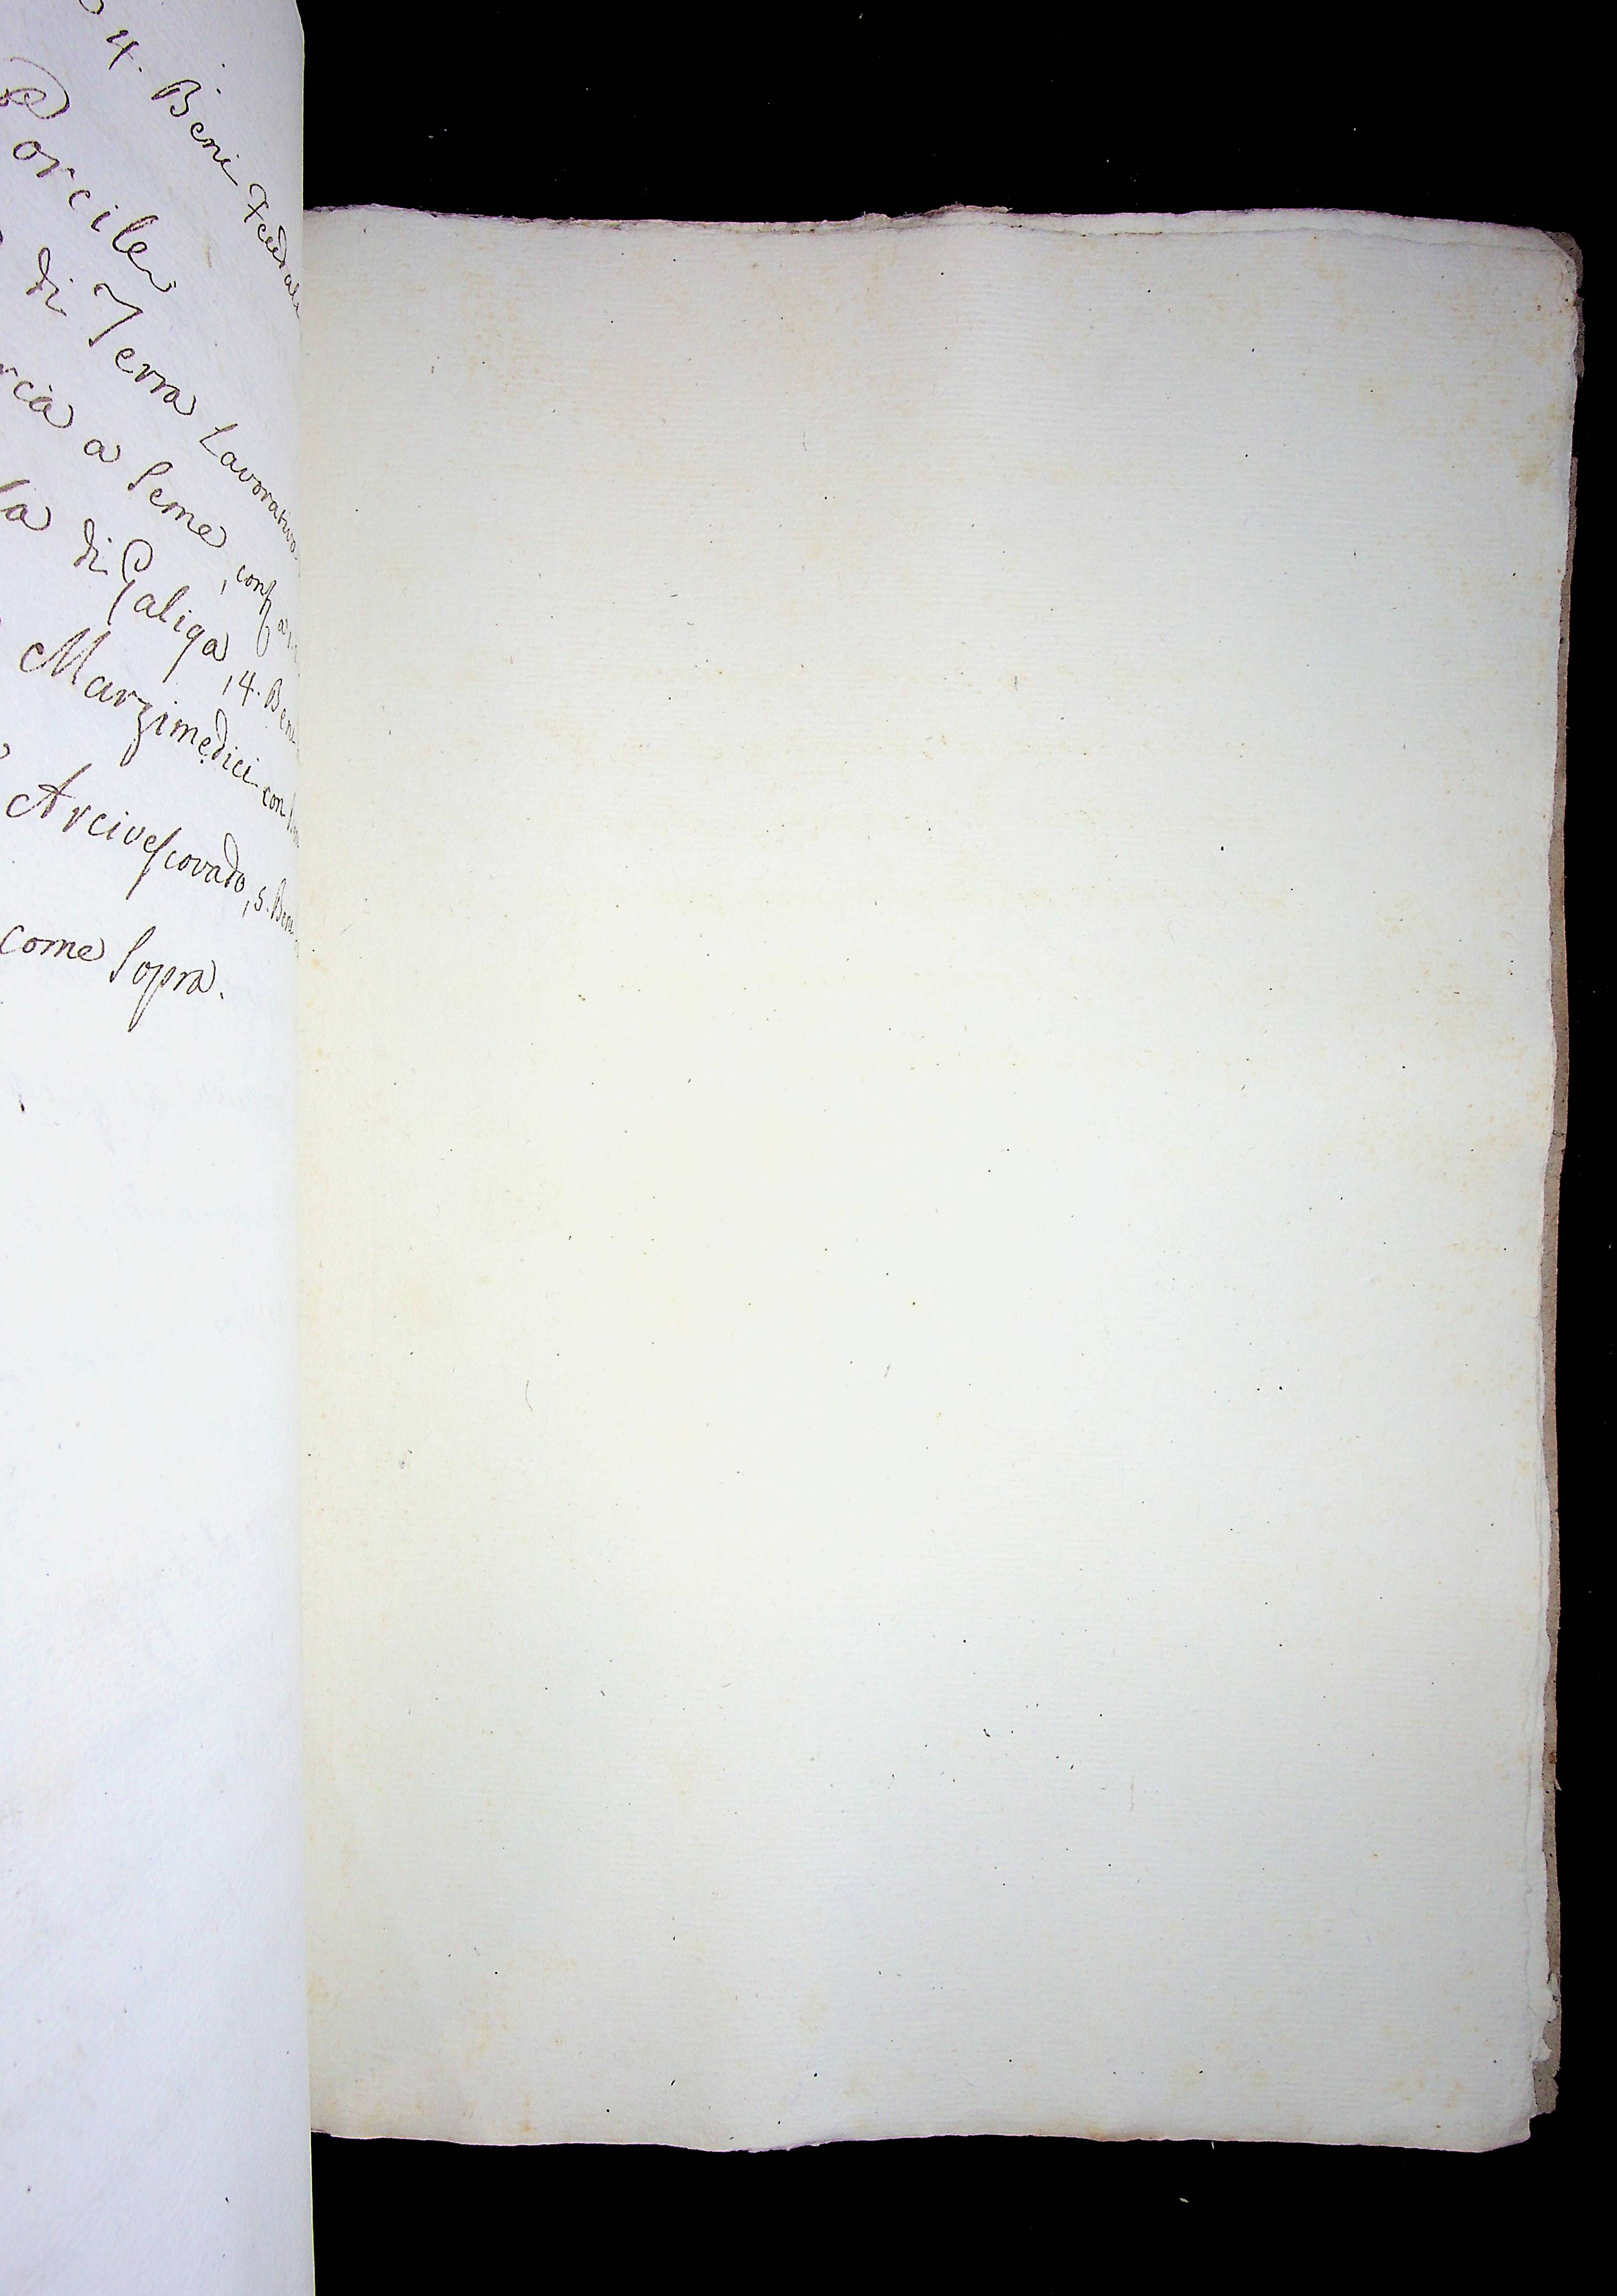 4. Beni Feudali
Porcile
di Terra Lavorativa
a Seme, conf
di Galiga, 4. Beni
Marzimedici con
Arcivescovado, 5. Beni
come Sopra.